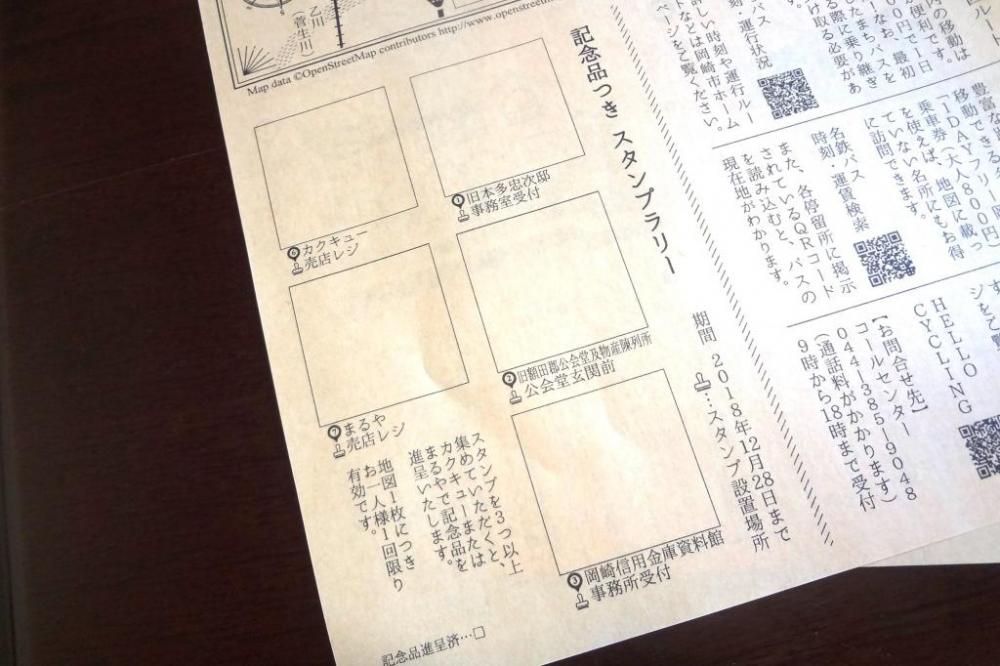 乙川
（菅生川）
Map data ©OpenStreetMap contributors http://www.openstreetm
記念品つき スタンプラリー
期間 2018年12月28日まで
…スタンプ設置場所
1 旧本多忠次邸
事務室受付
2 旧額田郡公会堂及物産陳列所
公会堂玄関前
3 岡崎信用金庫資料館
事務所受付
6 カクキュー
売店レジ
7 まるや
売店レジ
スタンプを3つ以上
集めていただくと、
カクキューまたは
まるやで記念品を
進呈いたします。
地図1枚につき
お一人様1回限り
有効です。
記念品進呈済…□
内の移動は
便利です。
円で1日
なお、最初
したまちバスを
る際に乗り継ぎ
け取る必要があ
バス
刻・運行状況
い時刻や運行ルー
トなどは岡崎市ホーム
ページをご覧ください。
移動できる
1DAYフリー
乗車券（大人800円）
を使えば、地図に載っ
ていない名所にもお得
に訪問できます。
名鉄バス 運賃検索
時刻
また、各停留所に掲示
されているQRコード
を読み込むと、バスの
現在地がわかります。
HELLO
CYCLING
【お問合せ先】
コールセンター
044-385-9048
（通話料がかかります）
9時から18時まで受付